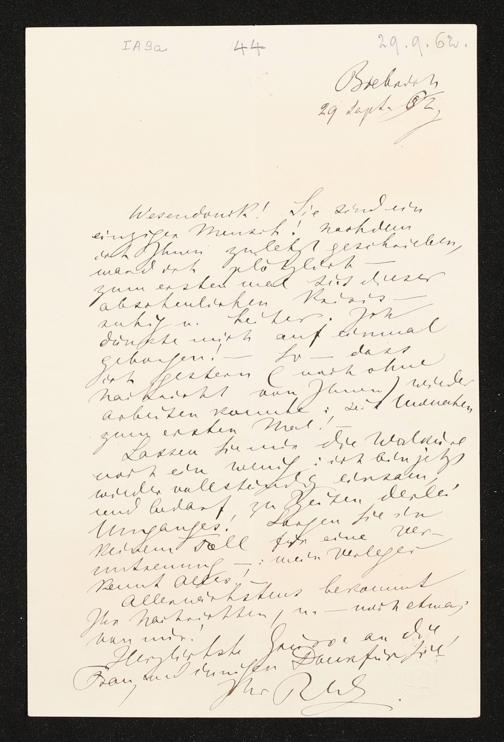 IA9a 44 29.9.62.
Biebrich
29 Sept. 62
Wesendonck! Sie sind ein
einziger Mensch! Nachdem
ich Ihnen zuletzt geschrieben,
ward ich plötzlich —
zum ersten mal seit dieser
abscheulichen Krisis —
ruhig u. heiter. Ich
dünkte mich auf einmal
geborgen! — So — dass
ich gestern (noch ohne
Nachricht von Ihnen) wieder
arbeiten konnte: seit Monaten
zum ersten Mal! —
Lassen Sie mir die Walküre
noch ein wenig: ich bin jetzt
wieder vollständig einsam,
und bedarf zu Zeiten derlei
Umganges! Sorgen Sie in
keinem Fall für eine Ver-
untreuung —: mein Verleger
kennt Alles. —
Allernächstens bekommt
Ihr Nachrichten, u. — noch etwas
von mir!
Herzlichste Grüsse an die
Frau, und innigen Dank für Sie!
Ihr RW.